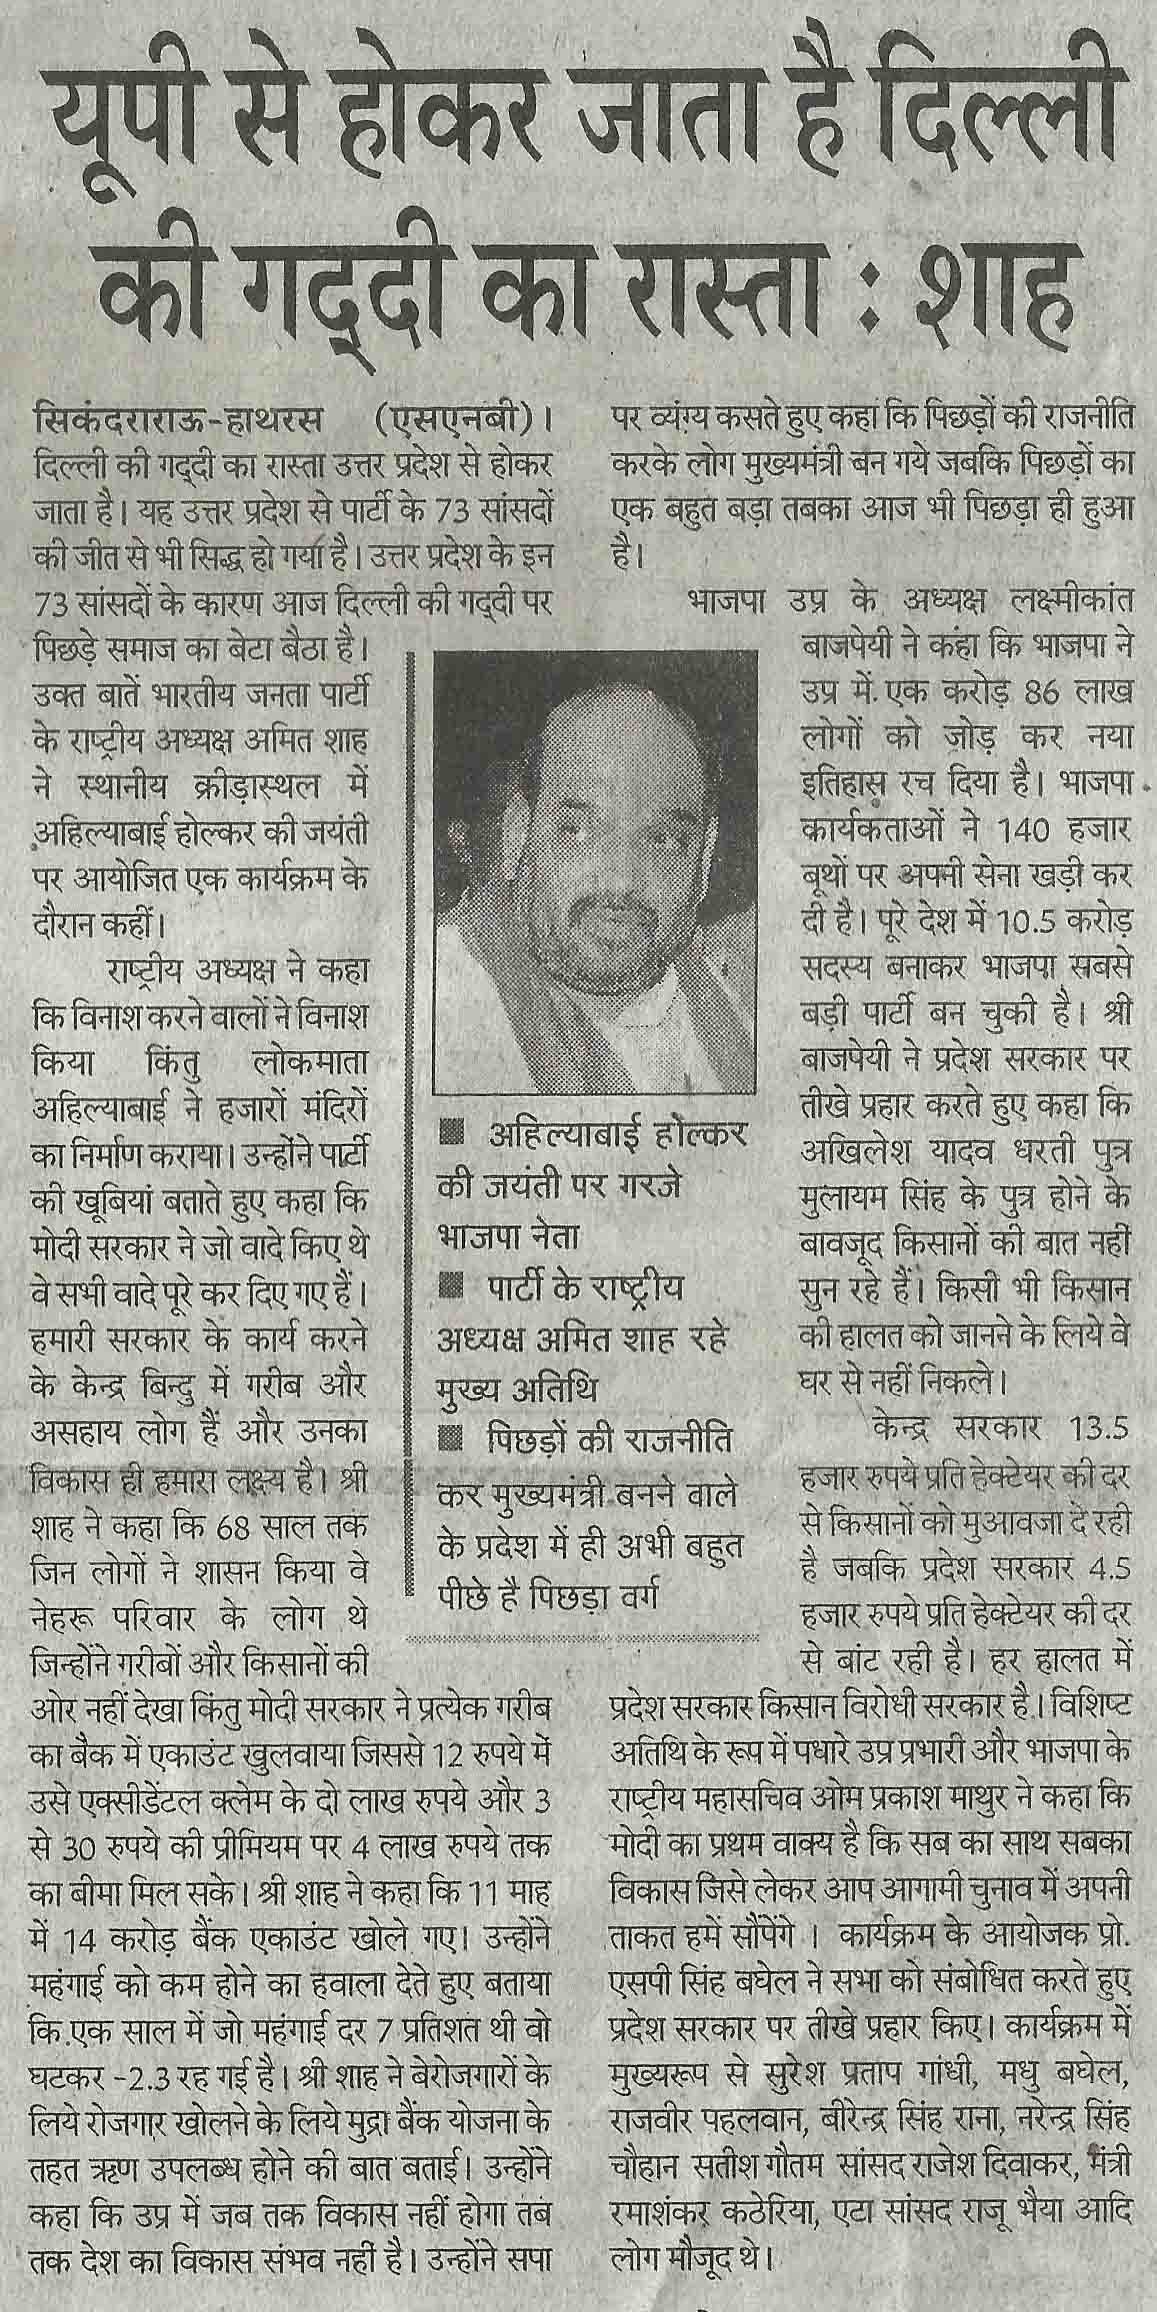 यूपी से होकर जाता है दिल्ली
की गद्दी का रास्ता : शाह
सिकंदराराऊ-हाथरस (एसएनबी)।
दिल्ली की गद्दी का रास्ता उत्तर प्रदेश से होकर
जाता है। यह उत्तर प्रदेश से पार्टी के 73 सांसदों
की जीत से भी सिद्ध हो गया है। उत्तर प्रदेश के इन
73 सांसदों के कारण आज दिल्ली की गद्दी पर
पिछड़े समाज का बेटा बैठा है।
उक्त बातें भारतीय जनता पार्टी
के राष्ट्रीय अध्यक्ष अमित शाह
ने स्थानीय क्रीड़ास्थल में
अहिल्याबाई होल्कर की जयंती
पर आयोजित एक कार्यक्रम के
दौरान कहीं।
राष्ट्रीय अध्यक्ष ने कहा
कि विनाश करने वालों ने विनाश
किया किंतु लोकमाता
अहिल्याबाई ने हजारों मंदिरों
का निर्माण कराया। उन्होंने पार्टी
की खूबियां बताते हुए कहा कि
मोदी सरकार ने जो वादे किए थे
वे सभी वादे पूरे कर दिए गए हैं।
हमारी सरकार के कार्य करने
के केन्द्र बिन्दु में गरीब और
असहाय लोग हैं और उनका
विकास ही हमारा लक्ष्य है। श्री
शाह ने कहा कि 68 साल तक
जिन लोगों ने शासन किया वे
नेहरू परिवार के लोग थे
जिन्होंने गरीबों और किसानों की
ओर नहीं देखा किंतु मोदी सरकार ने प्रत्येक गरीब
का बैंक में एकाउंट खुलवाया जिससे 12 रुपये में
उसे एक्सीडेंटल क्लेम के दो लाख रुपये और 3
से 30 रुपये की प्रीमियम पर 4 लाख रुपये तक
का बीमा मिल सके। श्री शाह ने कहा कि 11 माह
में 14 करोड़ बैंक एकाउंट खोले गए। उन्होंने
महंगाई को कम होने का हवाला देते हुए बताया
कि एक साल में जो महंगाई दर 7 प्रतिशत थी वो
घटकर -2.3 रह गई है। श्री शाह ने बेरोजगारों के
लिये रोजगार खोलने के लिये मुद्रा बैंक योजना के
तहत ऋण उपलब्ध होने की बात बताई। उन्होंने
कहा कि उप्र में जब तक विकास नहीं होगा तब
तक देश का विकास संभव नहीं है। उन्होंने सपा
■ अहिल्याबाई होल्कर
की जयंती पर गरजे
भाजपा नेता
■ पार्टी के राष्ट्रीय
अध्यक्ष अमित शाह रहे
मुख्य अतिथि
■ पिछड़ों की राजनीति
कर मुख्यमंत्री बनने वाले
के प्रदेश में ही अभी बहुत
पीछे है पिछड़ा वर्ग
पर व्यंग्य कसते हुए कहा कि पिछड़ों की राजनीति
करके लोग मुख्यमंत्री बन गये जबकि पिछड़ों का
एक बहुत बड़ा तबका आज भी पिछड़ा ही हुआ
है।
भाजपा उप्र के अध्यक्ष लक्ष्मीकांत
बाजपेयी ने कहा कि भाजपा ने
उप्र में एक करोड़ 86 लाख
लोगों को जोड़ कर नया
इतिहास रच दिया है। भाजपा
कार्यकताओं ने 140 हजार
बूथों पर अपनी सेना खड़ी कर
दी है। पूरे देश में 10.5 करोड़
सदस्य बनाकर भाजपा सबसे
बड़ी पार्टी बन चुकी है। श्री
बाजपेयी ने प्रदेश सरकार पर
तीखे प्रहार करते हुए कहा कि
अखिलेश यादव धरती पुत्र
मुलायम सिंह के पुत्र होने के
बावजूद किसानों की बात नहीं
सुन रहे हैं। किसी भी किसान
की हालत को जानने के लिये वे
घर से नहीं निकले।
केन्द्र सरकार 13.5
हजार रुपये प्रति हेक्टेयर की दर
से किसानों को मुआवजा दे रही
है जबकि प्रदेश सरकार 4.5
हजार रुपये प्रति हेक्टेयर की दर
से बांट रही है। हर हालत में
प्रदेश सरकार किसान विरोधी सरकार है। विशिष्ट
अतिथि के रूप में पधारे उप्र प्रभारी और भाजपा के
राष्ट्रीय महासचिव ओम प्रकाश माथुर ने कहा कि
मोदी का प्रथम वाक्य है कि सब का साथ सबका
विकास जिसे लेकर आप आगामी चुनाव में अपनी
ताकत हमें सौंपेंगे । कार्यक्रम के आयोजक प्रो.
एसपी सिंह बघेल ने सभा को संबोधित करते हुए
प्रदेश सरकार पर तीखे प्रहार किए। कार्यक्रम में
मुख्यरूप से सुरेश प्रताप गांधी, मधु बघेल,
राजवीर पहलवान, बीरेन्द्र सिंह राना, नरेन्द्र सिंह
चौहान सतीश गौतम सांसद राजेश दिवाकर, मंत्री
रमाशंकर कठेरिया, एटा सांसद राजू भैया आदि
लोग मौजूद थे।